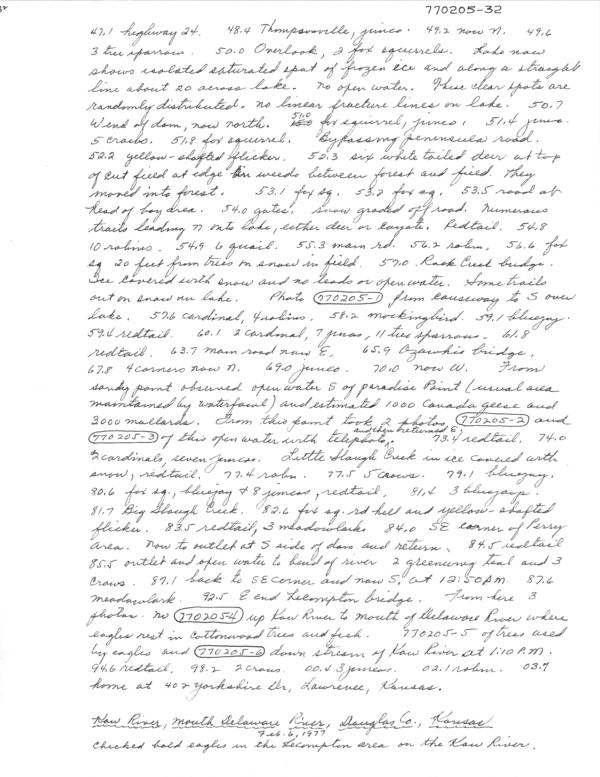 770205-32
47.1 highway 24. 48.4 Thompsonville, junco. 49.2 now N. 49.6
3 tree sparrow. 50.0 Overlook, 2 fox squirrels. Lake now
shows isolated saturated spot of frozen ice and along a straight
line about 20 across lake. No open water. These clear spots are
randomly distributed. No linear fracture lines on lake. 50.7
W end of dam, now north. 51.0 fox squirrel, junco, 51.4 junco.
5 crows. 51.8 fox squirrel. Bypassing peninsula road.
52.2 yellow-shafted flicker. 52.3 six white tailed deer at top
of cut field at edge in weeds between forest and field. They
moved into forest. 53.1 fox sq. 53.2 fox sq. 53.5 road at
head of bay area. 54.0 gates. Snow graded off road. Numerous
trails leading N onto lake, either deer or coyote. Redtail. 54.8
10 robins. 54.9 6 quail. 55.3 main rd. 56.2 robin. 56.6 fox
sq 20 feet from trees on snow in field. 57.0 Rock Creek bridge.
Ice covered with snow and no leads or open water. Some trails
out on snow on lake. Photo 770205-1 from causeway to S over
lake. 57.6 cardinal, 4 robins. 58.2 mockingbird. 59.1 bluejay.
59.4 redtail. 60.1 2 cardinal, 7 juncos, 11 tree sparrows. 61.8
redtail. 63.7 main road now E. 65.9 Ozawkie bridge.
67.8 4 corners now N. 69.0 junco. 70.0 now W. From
sandy point observed open water S of paradise Point (usual area
maintained by waterfowl) and estimated 1000 Canada geese and
3000 mallards. From this point took 2 photos 770205-2 and
770205-3 of this open water with telephoto, and then returned E. 73.4 redtail. 74.0
2 cardinals, seven juncos. Little Slough Creek in ice covered with
snow, redtail. 77.4 robin. 77.5 5 crows. 79.1 bluejay.
80.6 fox sq., bluejay + 8 juncos, redtail. 81.4 3 bluejays.
81.7 Big Slough Creek. 82.6 fox sq. rd hell and yellow-shafted
flicker. 83.5 redtail, 3 meadowlarks 84.0 SE corner of Perry
area. Now to outlet at S side of dam and return. 84.5 redtail
85.5 outlet and open water to bend of river 2 greenwing teal and 3
crows. 87.1 back to SE corner and now S, at 12:50 P.M. 87.6
meadowlark. 92.5 E end Lecompton bridge. From here 3
photos. No 770205-4 up Kaw River to mouth of Delaware River where
eagles rest in cottonwood trees and fish. 770205-5 of trees used
by eagles and 770205-6 down stream of Kaw River at 1:10 P.M.
94.6 redtail. 98.2 2 crows. 00.4 3 juncos. 02.1 robin. 03.7
home at 402 Yorkshire Dr, Lawrence, Kansas.
Kaw River, mouth Delaware River, Douglas Co., Kansas
Feb. 6, 1977
Checked bald eagles in the Lecompton area on the Kaw River.